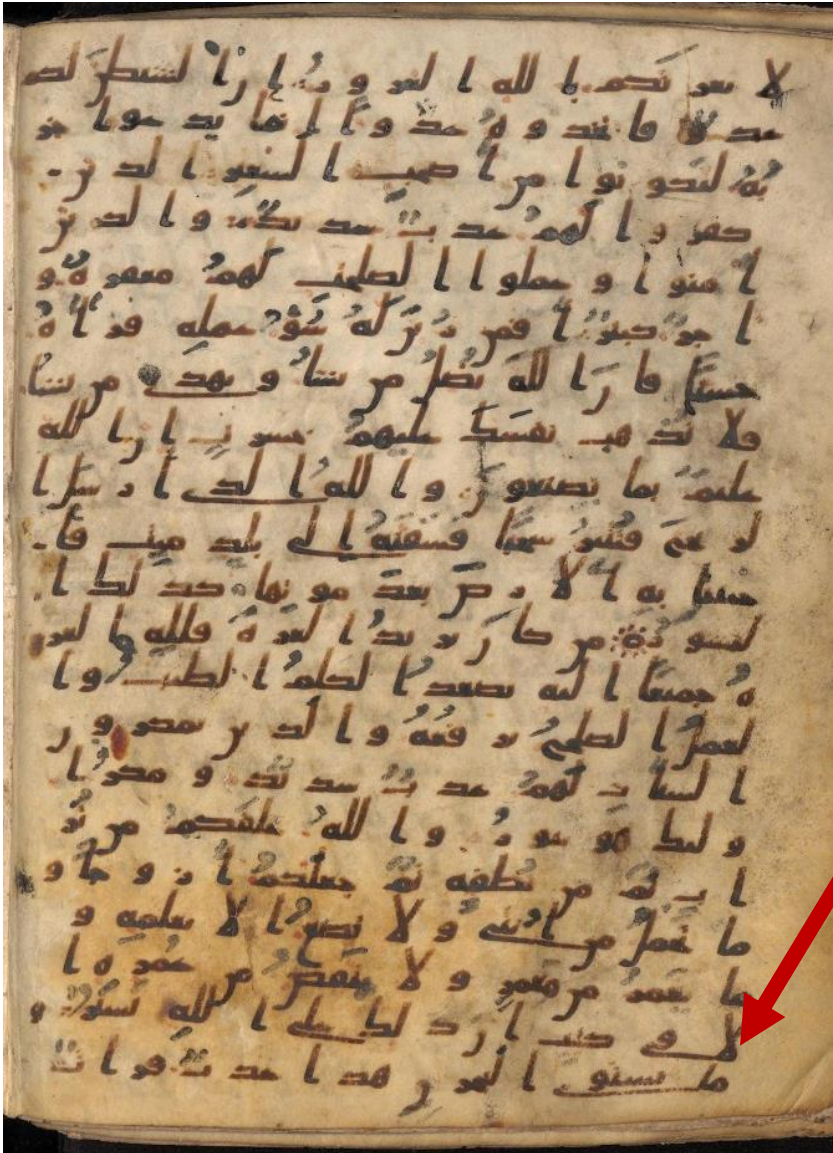 لا يغرنكم بالله الغرور ان الشيطن لكم
عدو فاتخذوه عدوا انما يدعوا حز
به ليكونوا من اصحب السعير الذين
كفروا لهم عذاب شديد والذين
امنوا وعملوا الصلحت لهم مغفرة و
اجر كبير افمن زين له سو عمله فراه
حسنا فان الله يضل من يشا ويهدي من يشا
فلا تذهب نفسك عليهم حسرت ان الله
عليم بما يصنعون والله الذي ارسل ا
لريح فتثير سحبا فسقنه الى بلد ميت فا
حيينا به الارض بعد موتها كذلك ا
لنشور من كان يريد العزة فلله العز
ة جميعا اليه يصعد الكلم الطيب وا
لعمل الصلح يرفعه والذين يمكرون
السيات لهم عذاب شديد ومكر ا
ولئك هو يبور والله خلقكم من تر
اب ثم من نطفة ثم جعلكم ازوجا و
ما تحمل من انثى ولا تضع الا بعلمه و
ما يعمر من معمر ولا ينقص من عمره ا
لا في كتب ان ذلك على الله يسير و
ما يستوي البحرن هذا عذب فرات